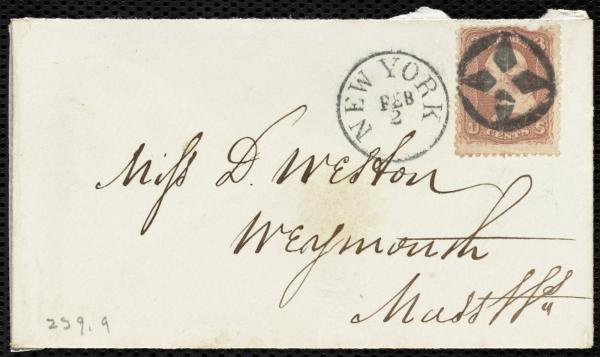 NEW YORK
FEB
2
U S
CENTS
Miss D. Weston
Weymouth
Mass
259.9